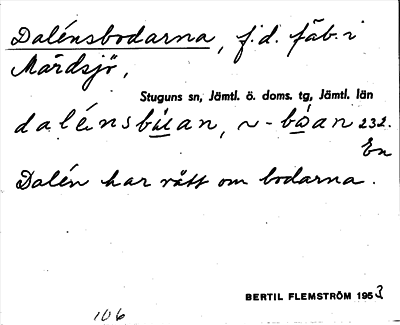 Dalénsbodarna, f.d. fäb. i
Mårdsjö,
Stuguns sn, Jämtl. ö. doms. tg, Jämtl. län
dalénsbu̲an, ~-bo̲an 232.
En
Dalén har rätt om bodarna.
BERTIL FLEMSTRÖM 1953
106